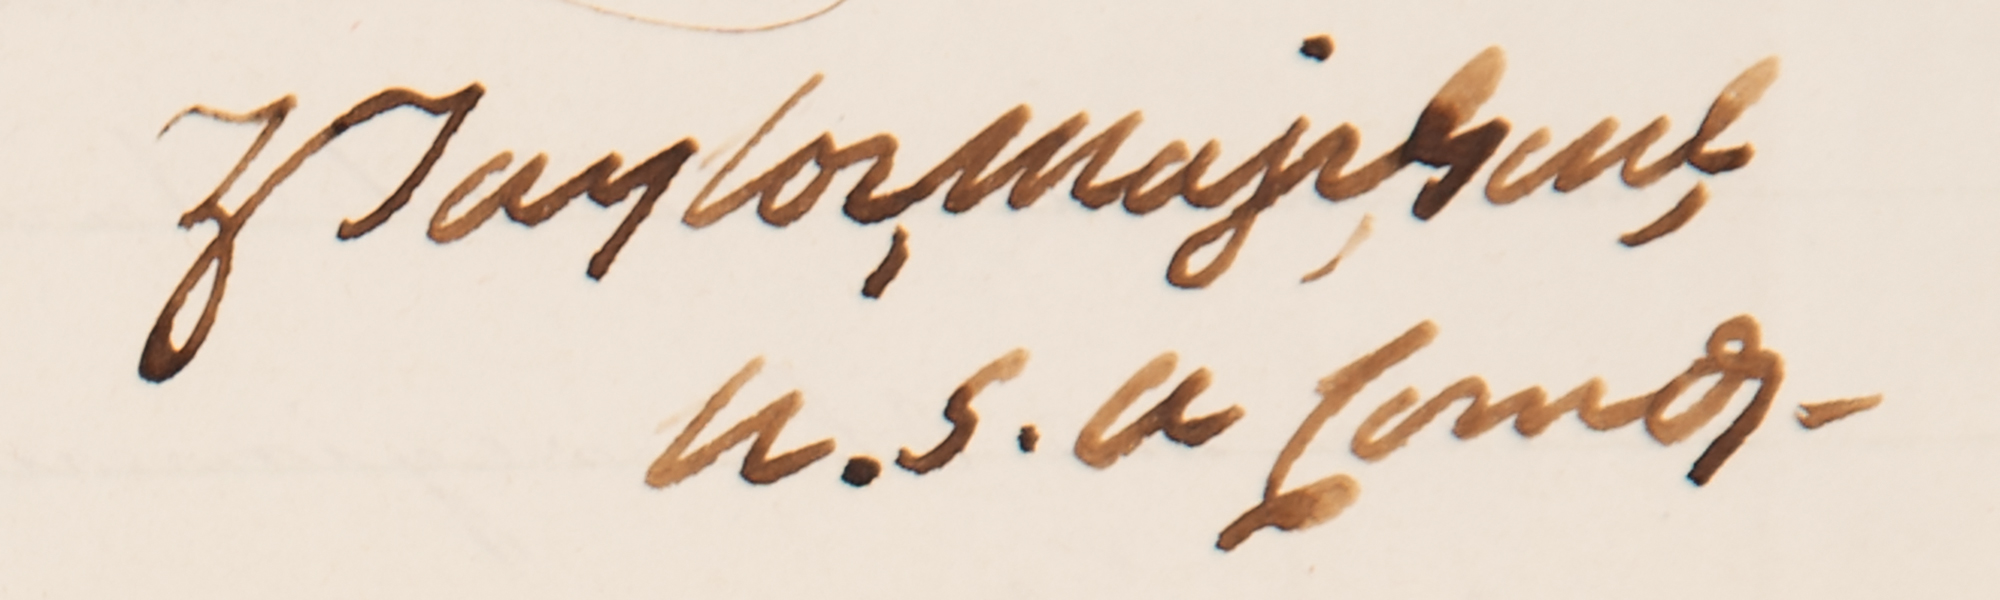 Z Taylor, Maj. Genl,
U.S. A Comdg-